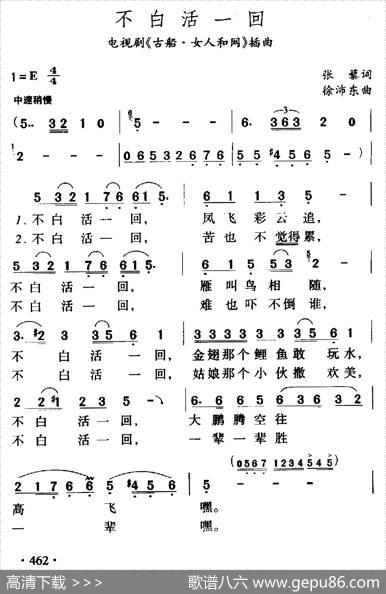 不白活一回
电视剧《古船·女人和网》插曲
1=E 4/4
张藜词
徐沛东曲
中速稍慢
(5·· 32 1 0 5 - - - 6· 363 2 0
2 - - - 06532676 55 #456 5 -)
5 32 176 61 5 6 1 1 3 5 -
1.不白活一回, 凤飞彩云追,
2.苦也不觉得累,
2.不白活一回,
5 32 3 2 176 61 5· 6 1 5 2 53 2
不白活一回, 雁叫鸟相随,
不白活一回, 难也吓不倒谁,
3· #2 3 176 5 - 3333 33 35 61·
不白活一回, 金翅那个鲤鱼敢玩水,
不白活一回, 姑娘那个小伙撒欢美,
2 2 #1 2 3 5 - 6· 6 65 6 36 3 6 2
不白活一回, 大鹏腾空往
不白活一回, 一辈一辈胜
(0567 1234 545)
2 1 7 6 6 5 #4 5 6 5 - - -
高飞嘿。
一辈嘿。
·462·
高清下载 >>>
歌谱八六 www.gepu86.com